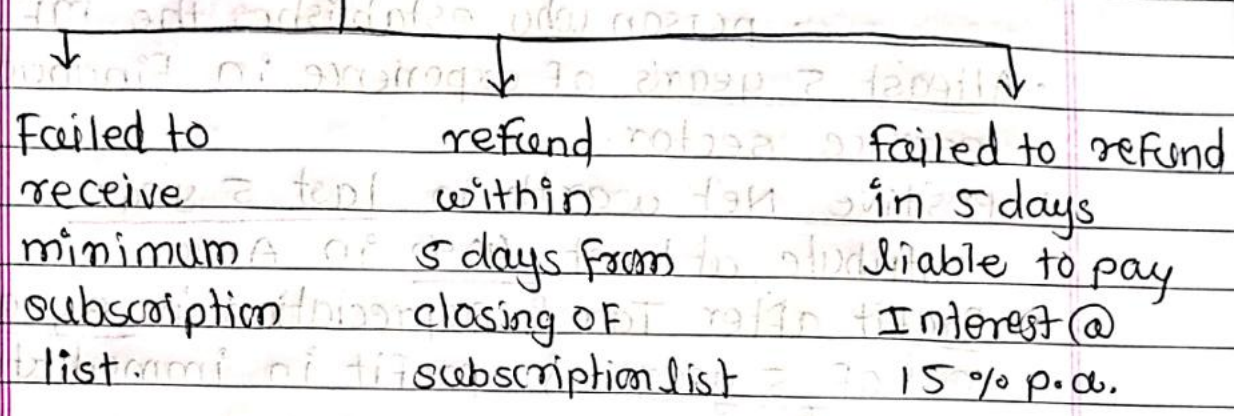 Failed to
receive
minimum
subscription
list.
refund
within
5 days from
closing of
subscription list
failed to refund
in 5 days
liable to pay
Interest @
15% p.a.